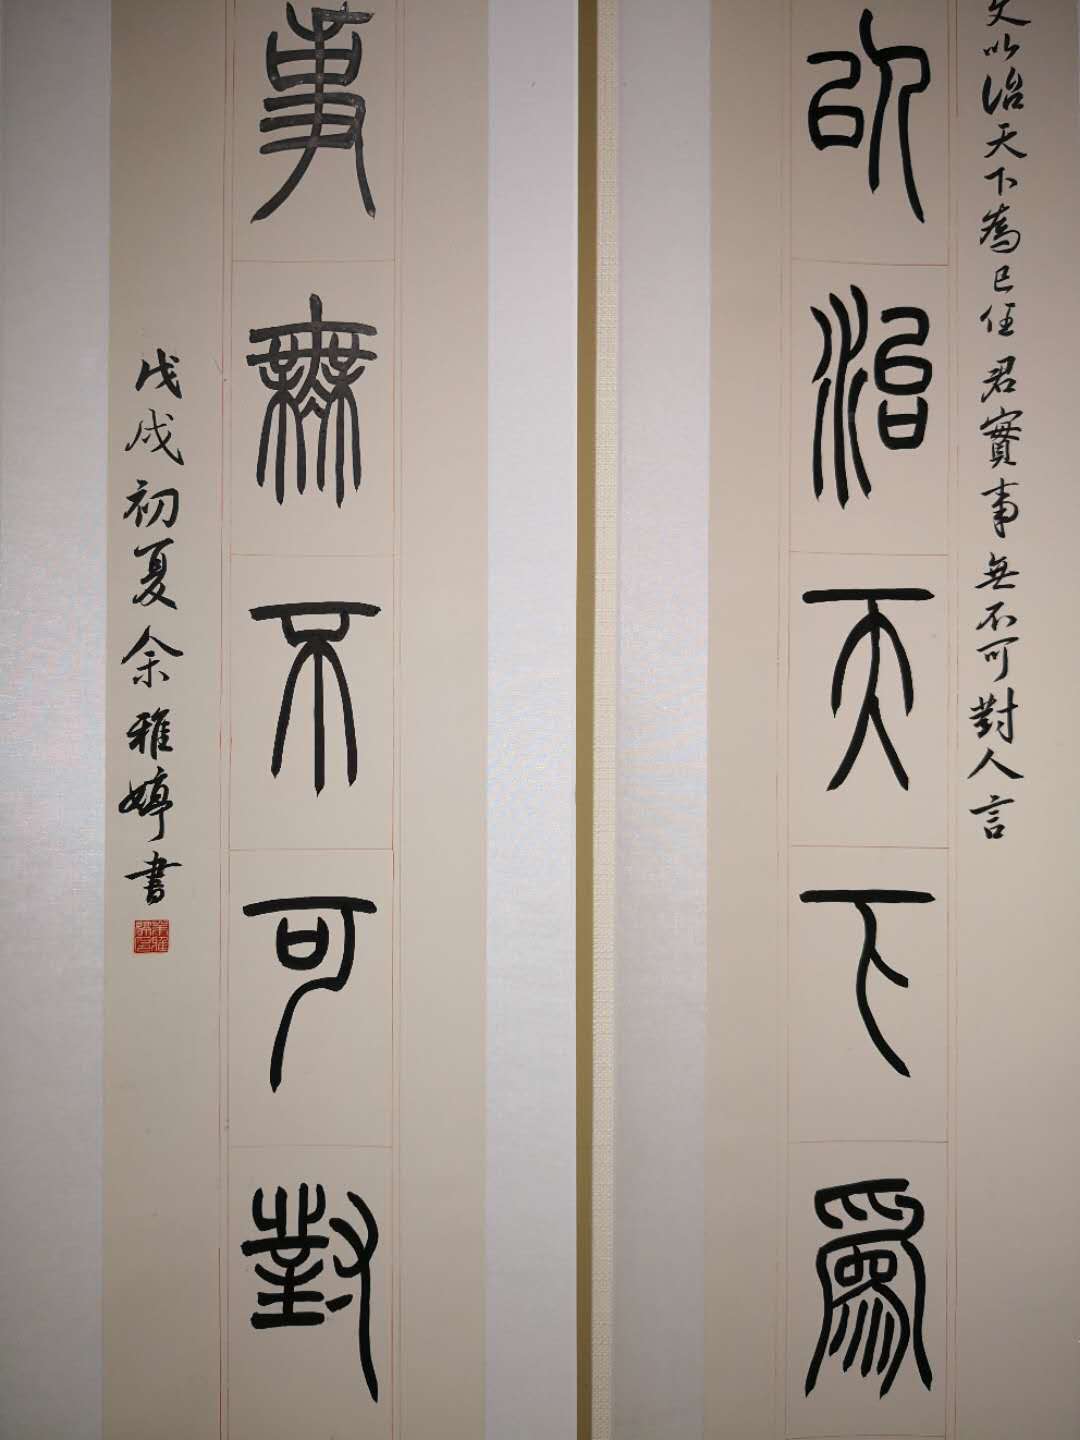 文以治天下為己任君實事無不可對人言
以治天下爲
事無不可對
戊戌初夏余雅婷書